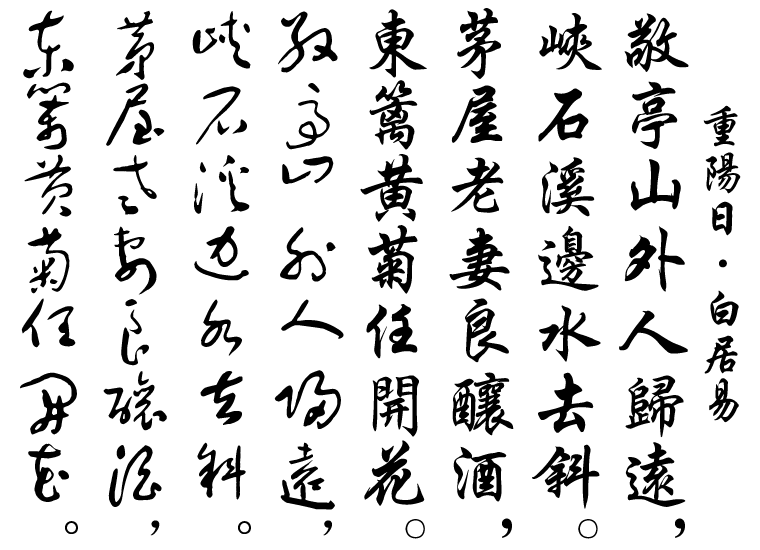 重陽日·白居易
敬亭山外人歸遠，
峽石溪邊水去斜。
茅屋老妻良釀酒，
東籬黃菊任開花。
敬亭山外人歸遠，
峽石溪邊水去斜。
茅屋老妻良釀酒，
東籬黃菊任開花。